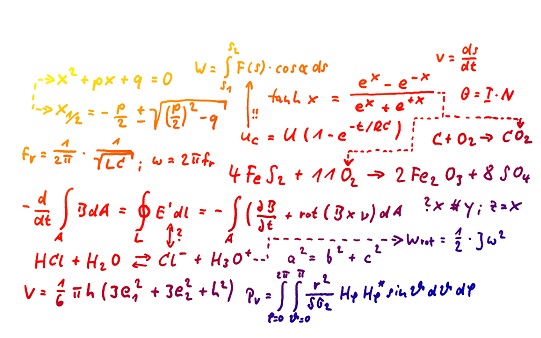 x² + px + q = 0
W = ∫ F(s) · cosα ds
s₂
s₁
v = ds/dt
x₁/₂ = - p/2 ± √((p/2)² - q)
!!
tanh x = (eˣ - e⁻ˣ)/(eˣ + e⁺ˣ)
Θ = I · N
u_c = U (1 - e^(-t/RC))
C + O₂ → CO₂
f_r = 1/2π · 1/√LC ; ω = 2πf_r
4 FeS₂ + 11 O₂ → 2 Fe₂O₃ + 8 SO₄
- d/dt ∫_A B dA = ∮_L E' dl = - ∫_A (∂B/∂t + rot (B × v) dA
?x # y; z = x
?
HCl + H₂O ⇌ Cl⁻ + H₃O⁺
a² = b² + c²
W_rot = 1/2 · J ω²
V = 1/6 π h (3e₁² + 3e₂² + h²)
P_v = ∫_φ=0^2π ∫_ϑ=0^π r²/ H_φ H_φ* sin ϑ dϑ dφ